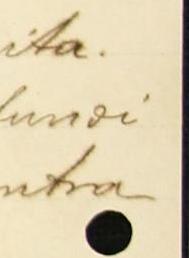 ita.
fundi
ntra